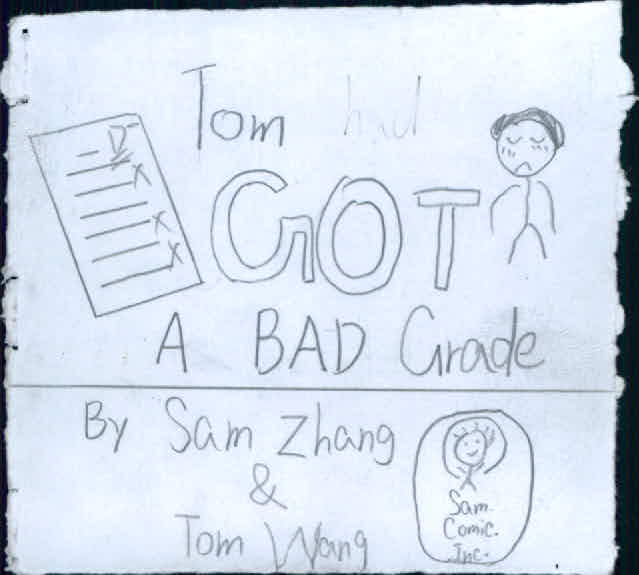 Tom had
GOT
A BAD Grade
D-
By Sam Zhang
&
Tom Wang
Sam
Comic.
Inc.